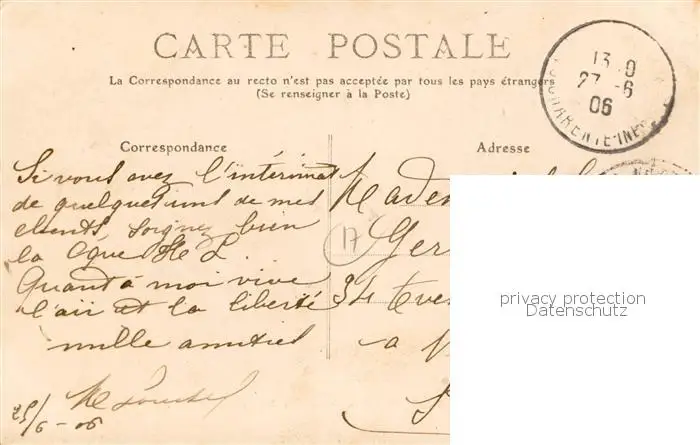 CARTE POSTALE
La Correspondance au recto n'est pas acceptée par tous les pays étrangers
(Se renseigner à la Poste)
Correspondance
Adresse
13 0
27 -6
06
CHARENTE-INF
Si vous avez l'intérimat
de quelques uns de mes
clients, soignez bien
la Cque H L.
Quant à moi vive
l'air et la liberté
mille amitiés
25/6-06
Madem
Ger
34
a
17
privacy protection
Datenschutz